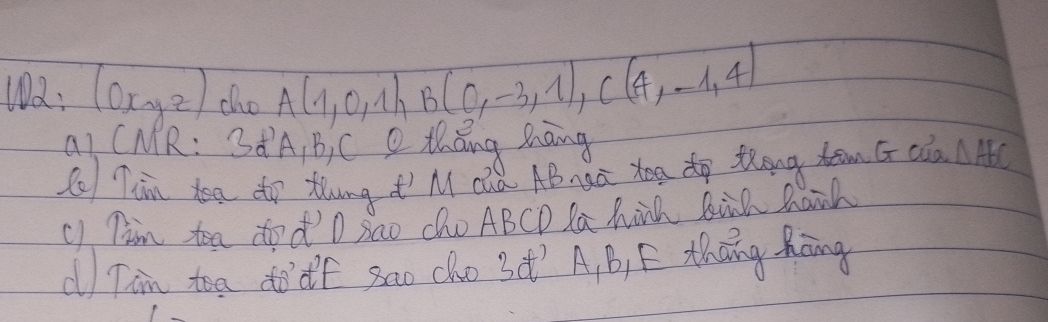 VD2: (Oxyz) cho A(1,0,1), B(0,-3,1), C(4,-1,4)
a) CMR: 3đ' A, B, C k thẳng hàng
b) Tìm tọa độ trung đ' M của AB và tọa độ trọng tâm G của ΔABC
c) Tìm tọa độ đ' D sao cho ABCD là hình bình hành
d) Tìm tọa độ đ' E sao cho 3đ' A, B, E thẳng hàng